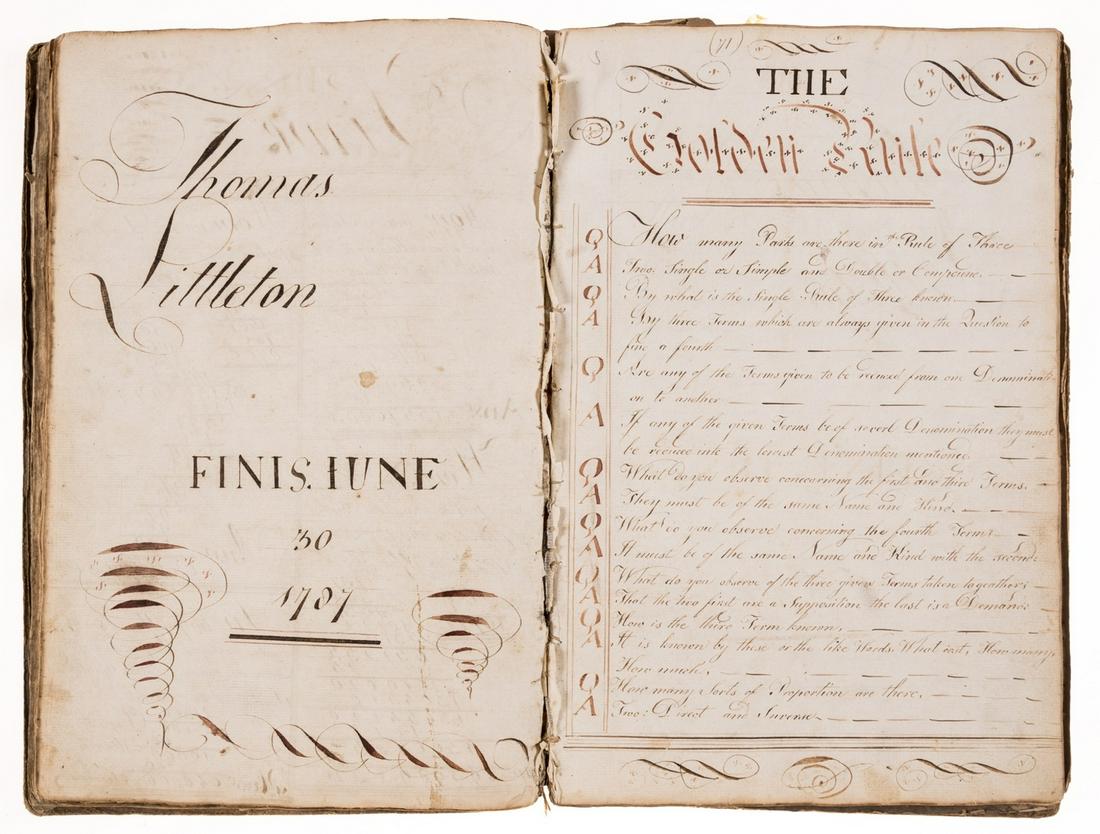 Thomas
Littleton
FINIS. IUNE
30
1787
(71)
THE
Golden Rule
Q How many Parts are there in the Rule of Three
A Two: Single or Simple and Double or Compound.
Q By what is the Single Rule of Three known.
A By three Terms which are always given in the Question to
find a fourth
Q Are any of the Terms given to be reduced from one Denominati-
on to another
A If any of the given Terms be of severl Denomination they must
be reduced into the lowest Denomination mentioned
Q What do you observe concerning the first and third Terms.
A They must be of the same Name and Kind.
Q What do you observe concerning the fourth Terms
A It must be of the same Name and Kind with the second.
Q What do you observe of the three given Terms taken togeather
A That the two first are a Supposition the last is a Demand.
Q How is the third Term known.
A It is known by these or the like Words. What cost, How many,
How much.
Q How many Sorts of Proportion are there.
A Two: Direct and Inverse